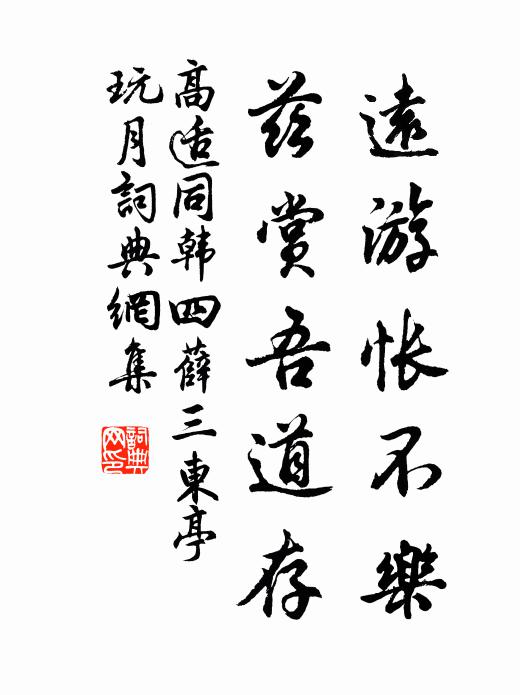 遠游悵不樂
茲賞吾道存
高适同韩四薛三東亭
玩月詞典網集
詞典
网印